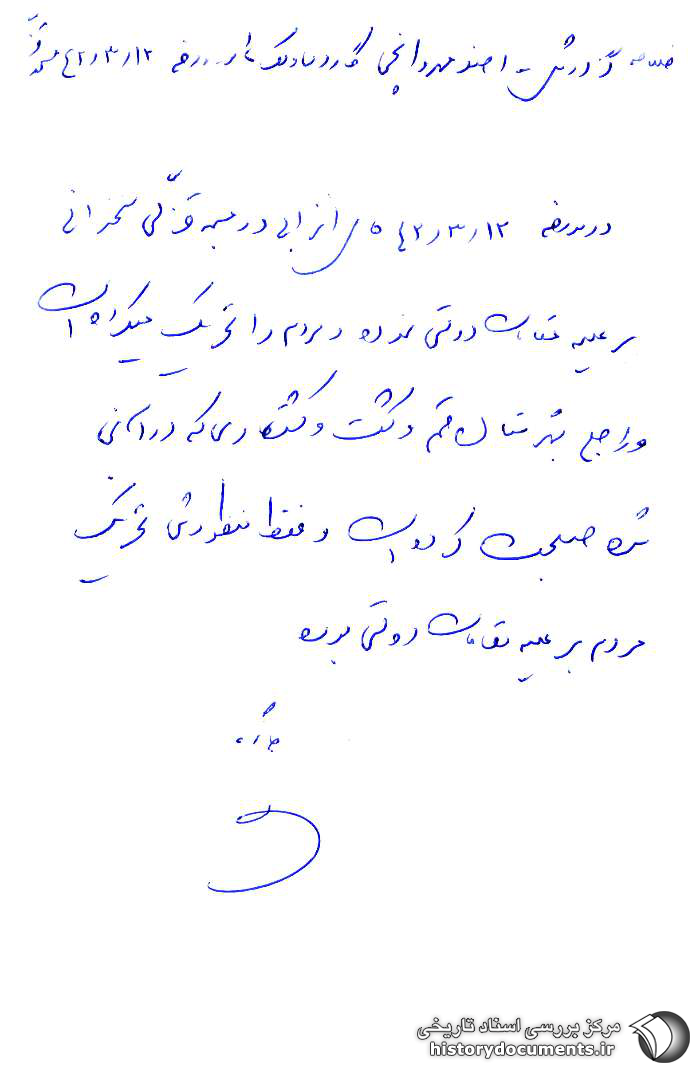 خلاصه گزارش احمد مهروانچی مورخه ۴۲/۳/۱۲
در مورخه ۴۲/۳/۱۲ انزابی در مسجد قزللی سخنرانی
بر علیه مقامات دولتی نموده و مردم را تحریک میکرده است
و راجع بشهرستان قم و کشت و کشتاری که در آنجا
شده صحبت کرده است و فقط منظورش تحریک
مردم بر علیه مقامات دولتی بوده
مرکز بررسی اسناد تاریخی
historydocuments.ir